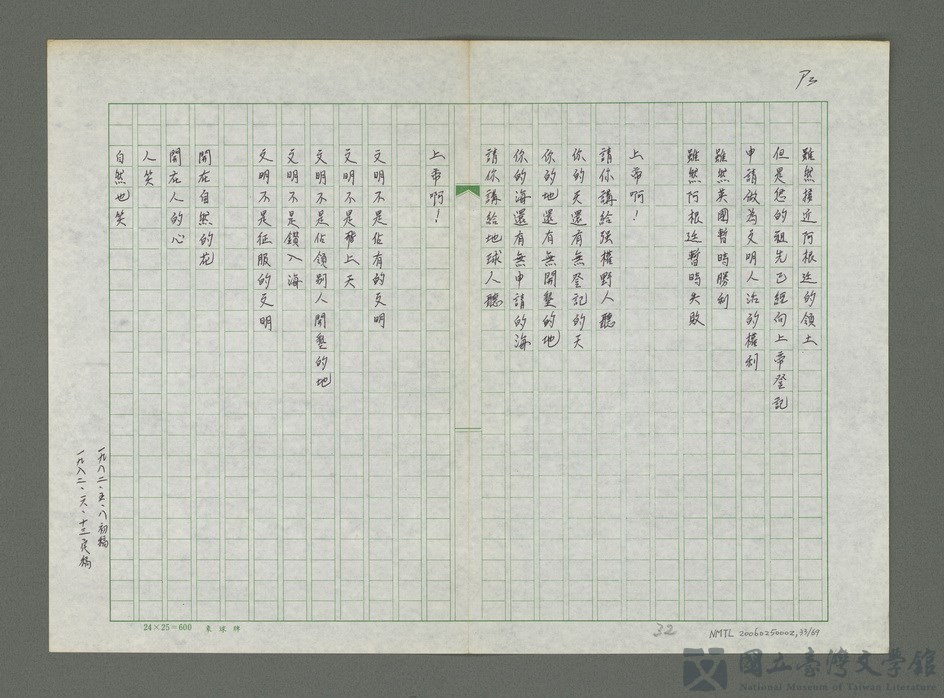 P3
雖然接近阿根廷的領土
但是您的祖先已經向上帝登記
申請做為文明人治的權利
雖然英國暫時勝利
雖然阿根廷暫時失敗
上帝啊！
請你講給強權野人聽
你的天還有無登記的天
你的地還有無開墾的地
你的海還有無申請的海
請你講給地球人聽
上帝啊！
文明不是佔有的文明
文明不是飛上天
文明不是佔領別人開墾的地
文明不是鑽入海
文明不是征服的文明
開在自然的花
開在人的心
人笑
自然也笑
一九八二．五．八初稿
一九八二．六．十三完稿
24×25=600 東球牌
32
NMTL 20060250002,33/69
國立臺灣文學館
National Museum of Taiwan Literature